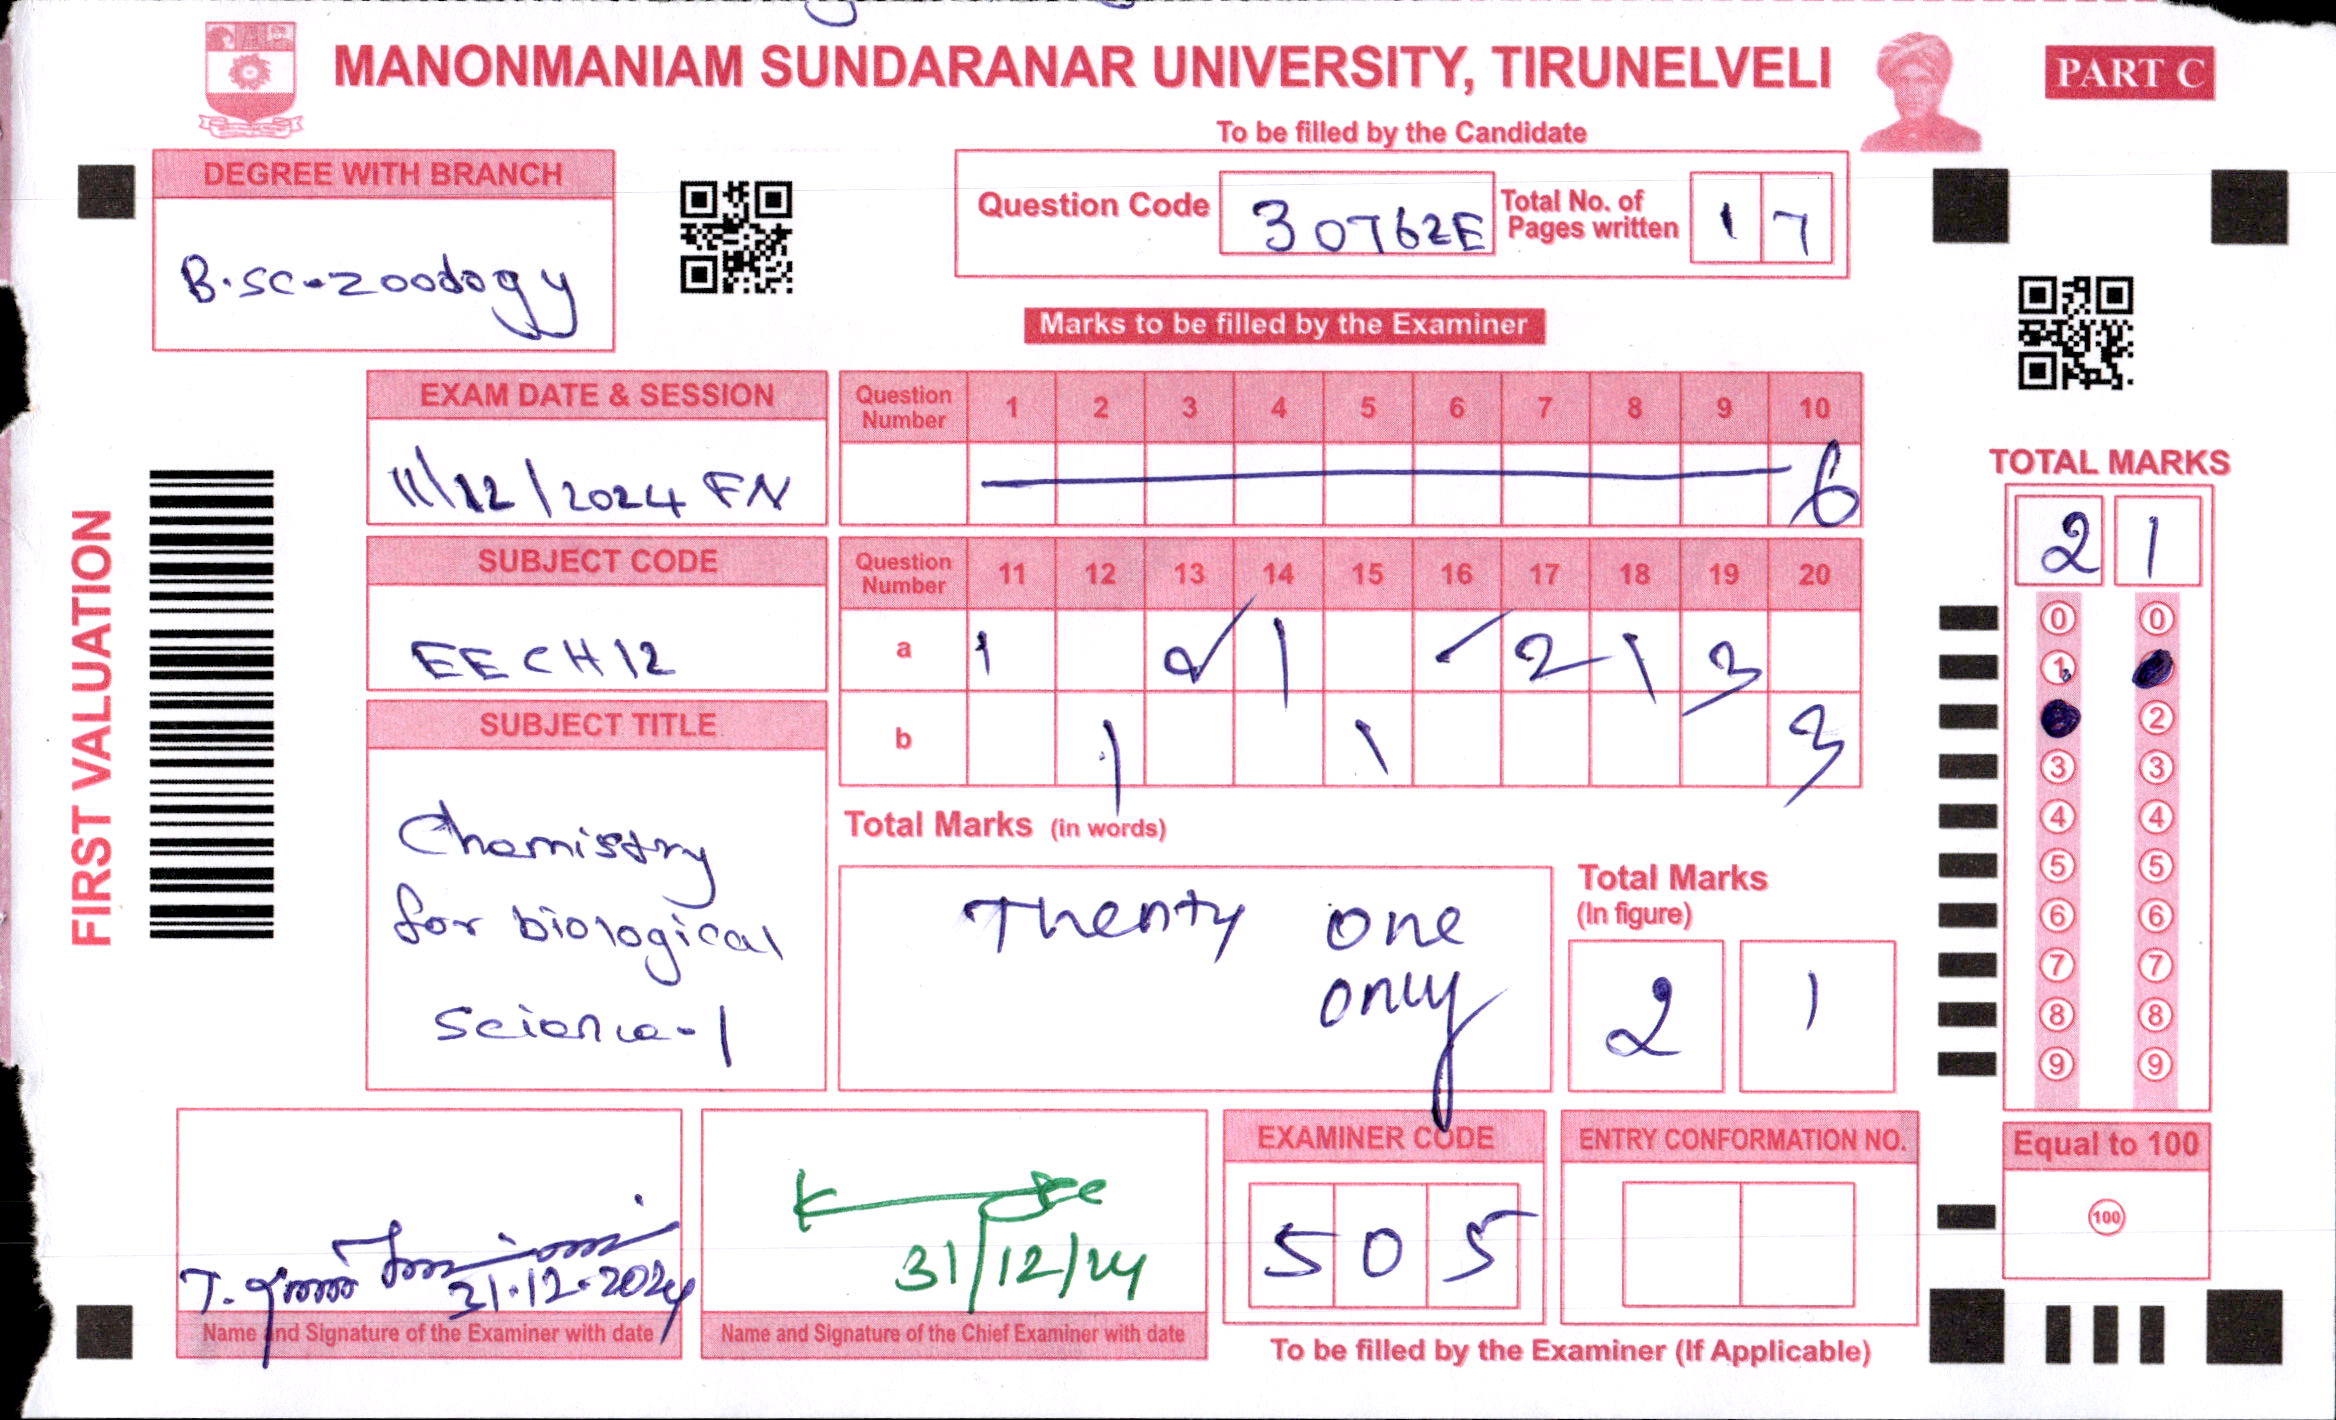 MANONMANIAM SUNDARANAR UNIVERSITY, TIRUNELVELI
PART C
To be filled by the Candidate
DEGREE WITH BRANCH
B.sc-zoology
Question Code 30762E
Total No. of Pages written 17
Marks to be filled by the Examiner
FIRST VALUATION
EXAM DATE & SESSION
11/12/2024 FN
SUBJECT CODE
EECH12
SUBJECT TITLE
Chemistry
for biological
Science-1
Question Number 1 2 3 4 5 6 7 8 9 10
6
Question Number 11 12 13 14 15 16 17 18 19 20
a 1 1 2 1 3
b 1 1 3
Total Marks (in words)
Thenty one
only
Total Marks
(In figure)
2 1
TOTAL MARKS
2 1
0 0
1
2
3 3
4 4
5 5
6 6
7 7
8 8
9 9
Equal to 100
100
31.12.2024
Name and Signature of the Examiner with date
31/12/24
Name and Signature of the Chief Examiner with date
EXAMINER CODE
5 0 5
ENTRY CONFORMATION NO.
To be filled by the Examiner (If Applicable)